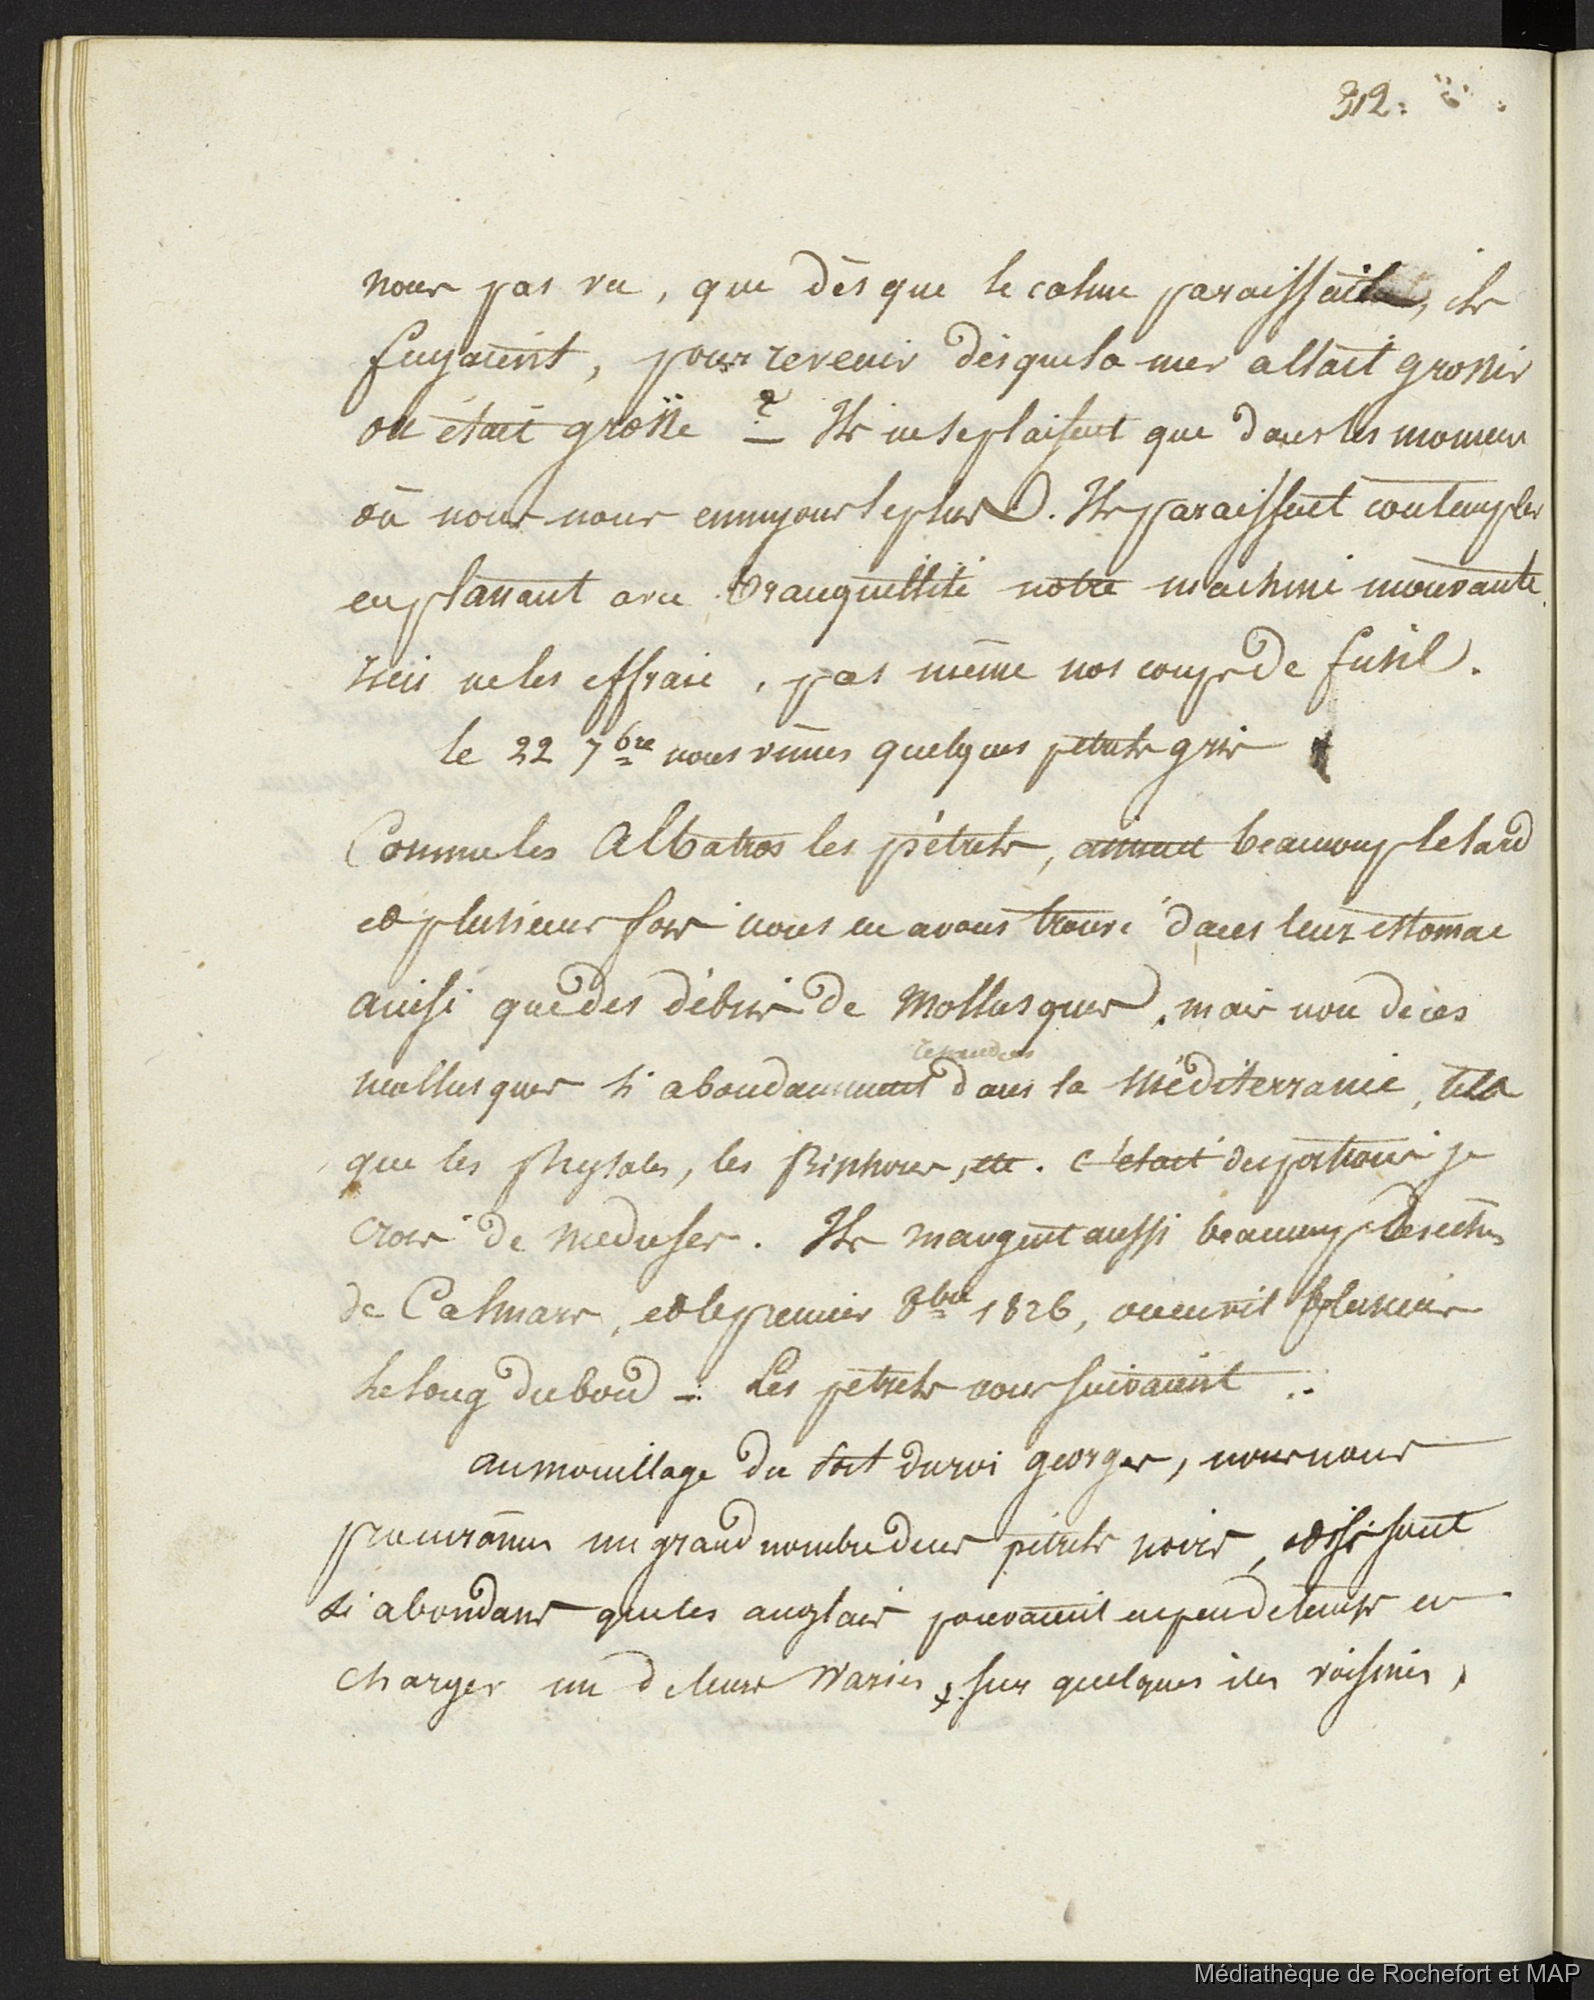 312.
nous pas vu, que dès que le calme paraissait, ils
fuyaient, pour revenir dès que la mer allait grossir
ou était grosse ? Ils ne se plaisent que dans les momens
où nous nous ennuyons le plus. Ils paraissent contempler
en planant avec tranquillité notre machine mouvante.
rien ne les effraie, pas même nos coups de fusil.
le 22 7bre nous vimes quelques pétrels gris
Comme les Albatros les pétrels, aiment beaucoup le lard
et plusieurs fois nous en avons trouvé dans leur estomac
ainsi que des débris de Mollusques, mais non de ces
répandues
mollusques si abondamment dans la Méditerranée, tels
que les physales, les Biphores, etc. c'était des portions je
crois de meduses. Ils mangent aussi beaucoup de seches
de Calmars, et le premier 8bre 1826, on en vit plusieurs
le long du bord -: Les pétrels nous suivaient ..
au mouillage du Port du roi georges, nous nous
procurâmes un grand nombre de ces pétrels noirs, et ils sont
si abondans que les anglais pouvaient en peu de temps en
charger un de leurs navires, sur quelques iles voisines,
Médiathèque de Rochefort et MAP